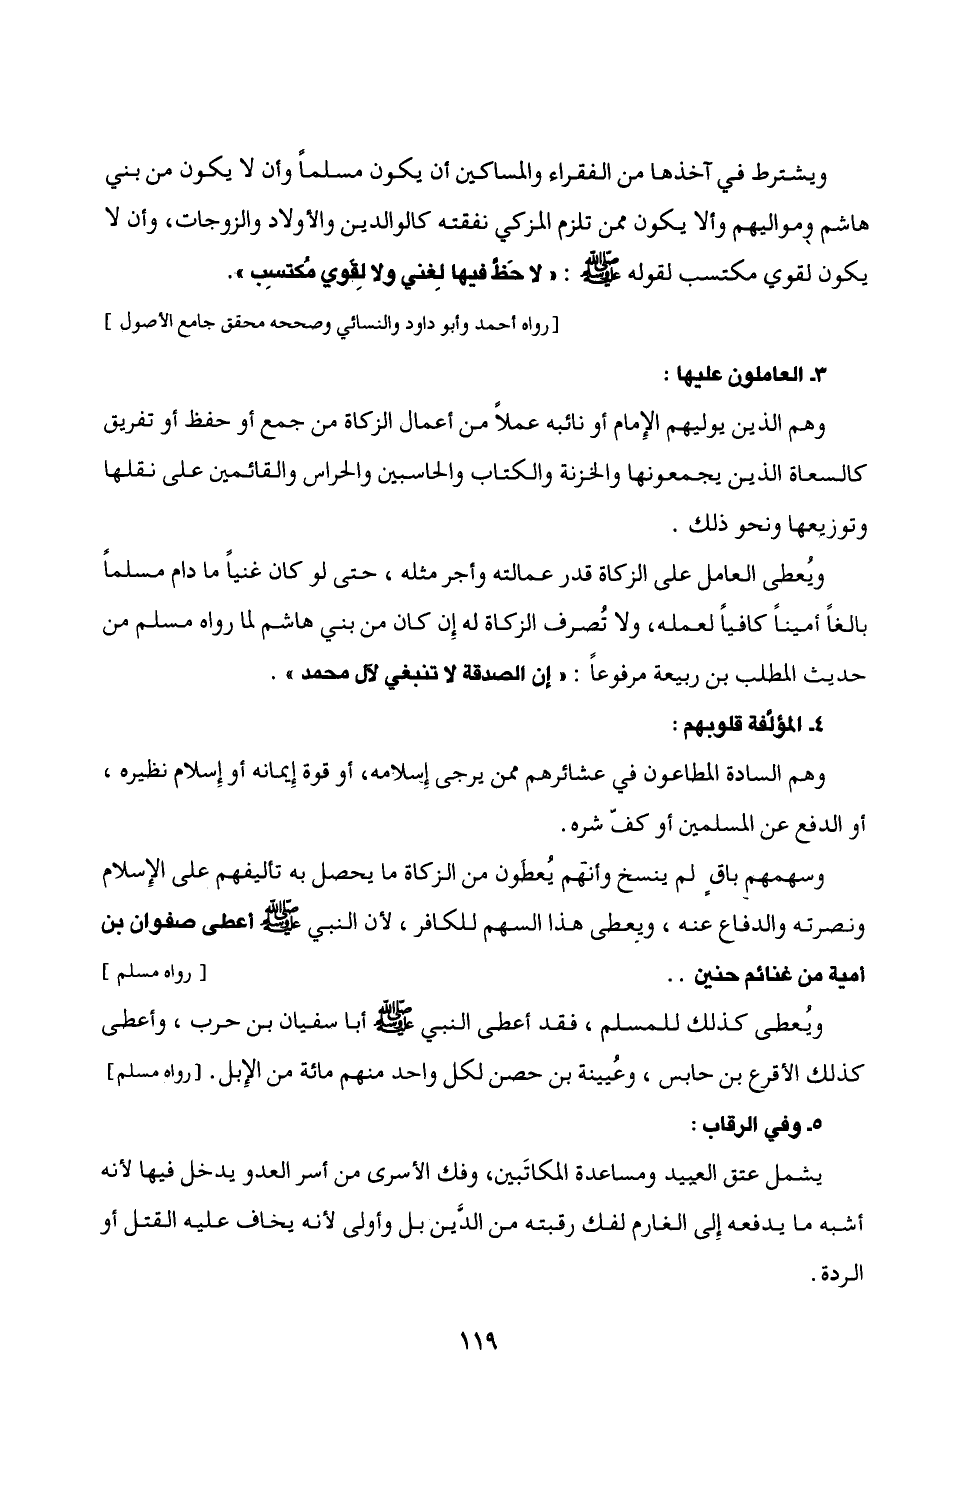 ويشترط في آخذها من الفقراء والمساكين أن يكون مسلماً وأن لا يكون من بني
هاشم ومواليهم وألا يكون ممن تلزم المزكي نفقته كالوالدين والأولاد والزوجات، وأن لا
يكون لقوي مكتسب لقوله ﷺ : « لا حَظَّ فيها لِغني ولا لِقَوي مُكتسِب ».
[ رواه أحمد وأبو داود والنسائي وصححه محقق جامع الأصول ]
٣ـ العاملون عليها :
وهم الذين يوليهم الإمام أو نائبه عملاً من أعمال الزكاة من جمع أو حفظ أو تفريق
كالسعاة الذين يجمعونها والخزنة والكتاب والحاسبين والحراس والقائمين على نقلها
وتوزيعها ونحو ذلك .
ويُعطى العامل على الزكاة قدر عمالته وأجر مثله ، حتى لو كان غنياً ما دام مسلماً
بالغاً أميناً كافياً لعمله، ولا تُصرف الزكاة له إن كان من بني هاشم لما رواه مسلم من
حديث المطلب بن ربيعة مرفوعاً : « إن الصدقة لا تنبغي لآل محمد » .
٤ـ المؤلَّفة قلوبهم :
وهم السادة المطاعون في عشائرهم ممن يرجى إسلامه، أو قوة إيمانه أو إسلام نظيره ،
أو الدفع عن المسلمين أو كفّ شره.
وسهمهم باقٍ لم ينسخ وأنهم يُعطَون من الزكاة ما يحصل به تأليفهم على الإسلام
ونصرته والدفاع عنه ، ويعطى هذا السهم للكافر ، لأن النبي ﷺ أعطى صفوان بن
أمية من غنائم حنين .. [ رواه مسلم ]
ويُعطى كذلك للمسلم ، فقد أعطى النبي ﷺ أبا سفيان بن حرب ، وأعطى
كذلك الأقرع بن حابس ، وعُيينة بن حصن لكل واحد منهم مائة من الإبل. [رواه مسلم]
٥ـ وفي الرقاب :
يشمل عتق العبيد ومساعدة المكاتَبين، وفك الأسرى من أسر العدو يدخل فيها لأنه
أشبه ما يدفعه إلى الغارم لفك رقبته من الدَّين بل وأولى لأنه يخاف عليه القتل أو
الردة .
١١٩